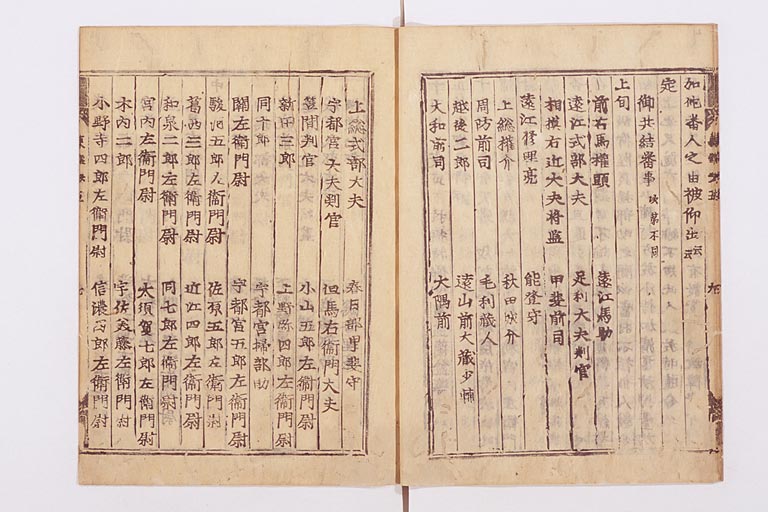 如他番人之由被仰出云云
定
御共結番事 次第不同
上旬
前右馬權頭 遠江馬助
遠江式部大夫 足利大夫判官
相摸右近大夫将監 甲斐前司
遠江修理亮 能登守
上総權介 秋田城介
周防前司 毛利蔵人
越後二郎 遠山前大蔵少輔
大和前司 大隅前
上総式部大夫 春日部甲斐守
宇都宮大夫判官 但馬右衛門大夫
笠間判官 小山五郎左衛門尉
新田三郎 上野弥四郎左衛門尉
同十郎 宇都宮掃部助
關左衛門尉 宇都宮五郎左衛門尉
駿河五郎左衛門尉 佐原五郎左衛門尉
葛西三郎左衛門尉 近江四郎左衛門尉
和泉二郎左衛門尉 同七郎左衛門尉
宮内左衛門尉 大須賀七郎左衛門尉
木内二郎 宇佐美藤左衛門尉
小野寺四郎左衛門尉 信濃四郎左衛門尉